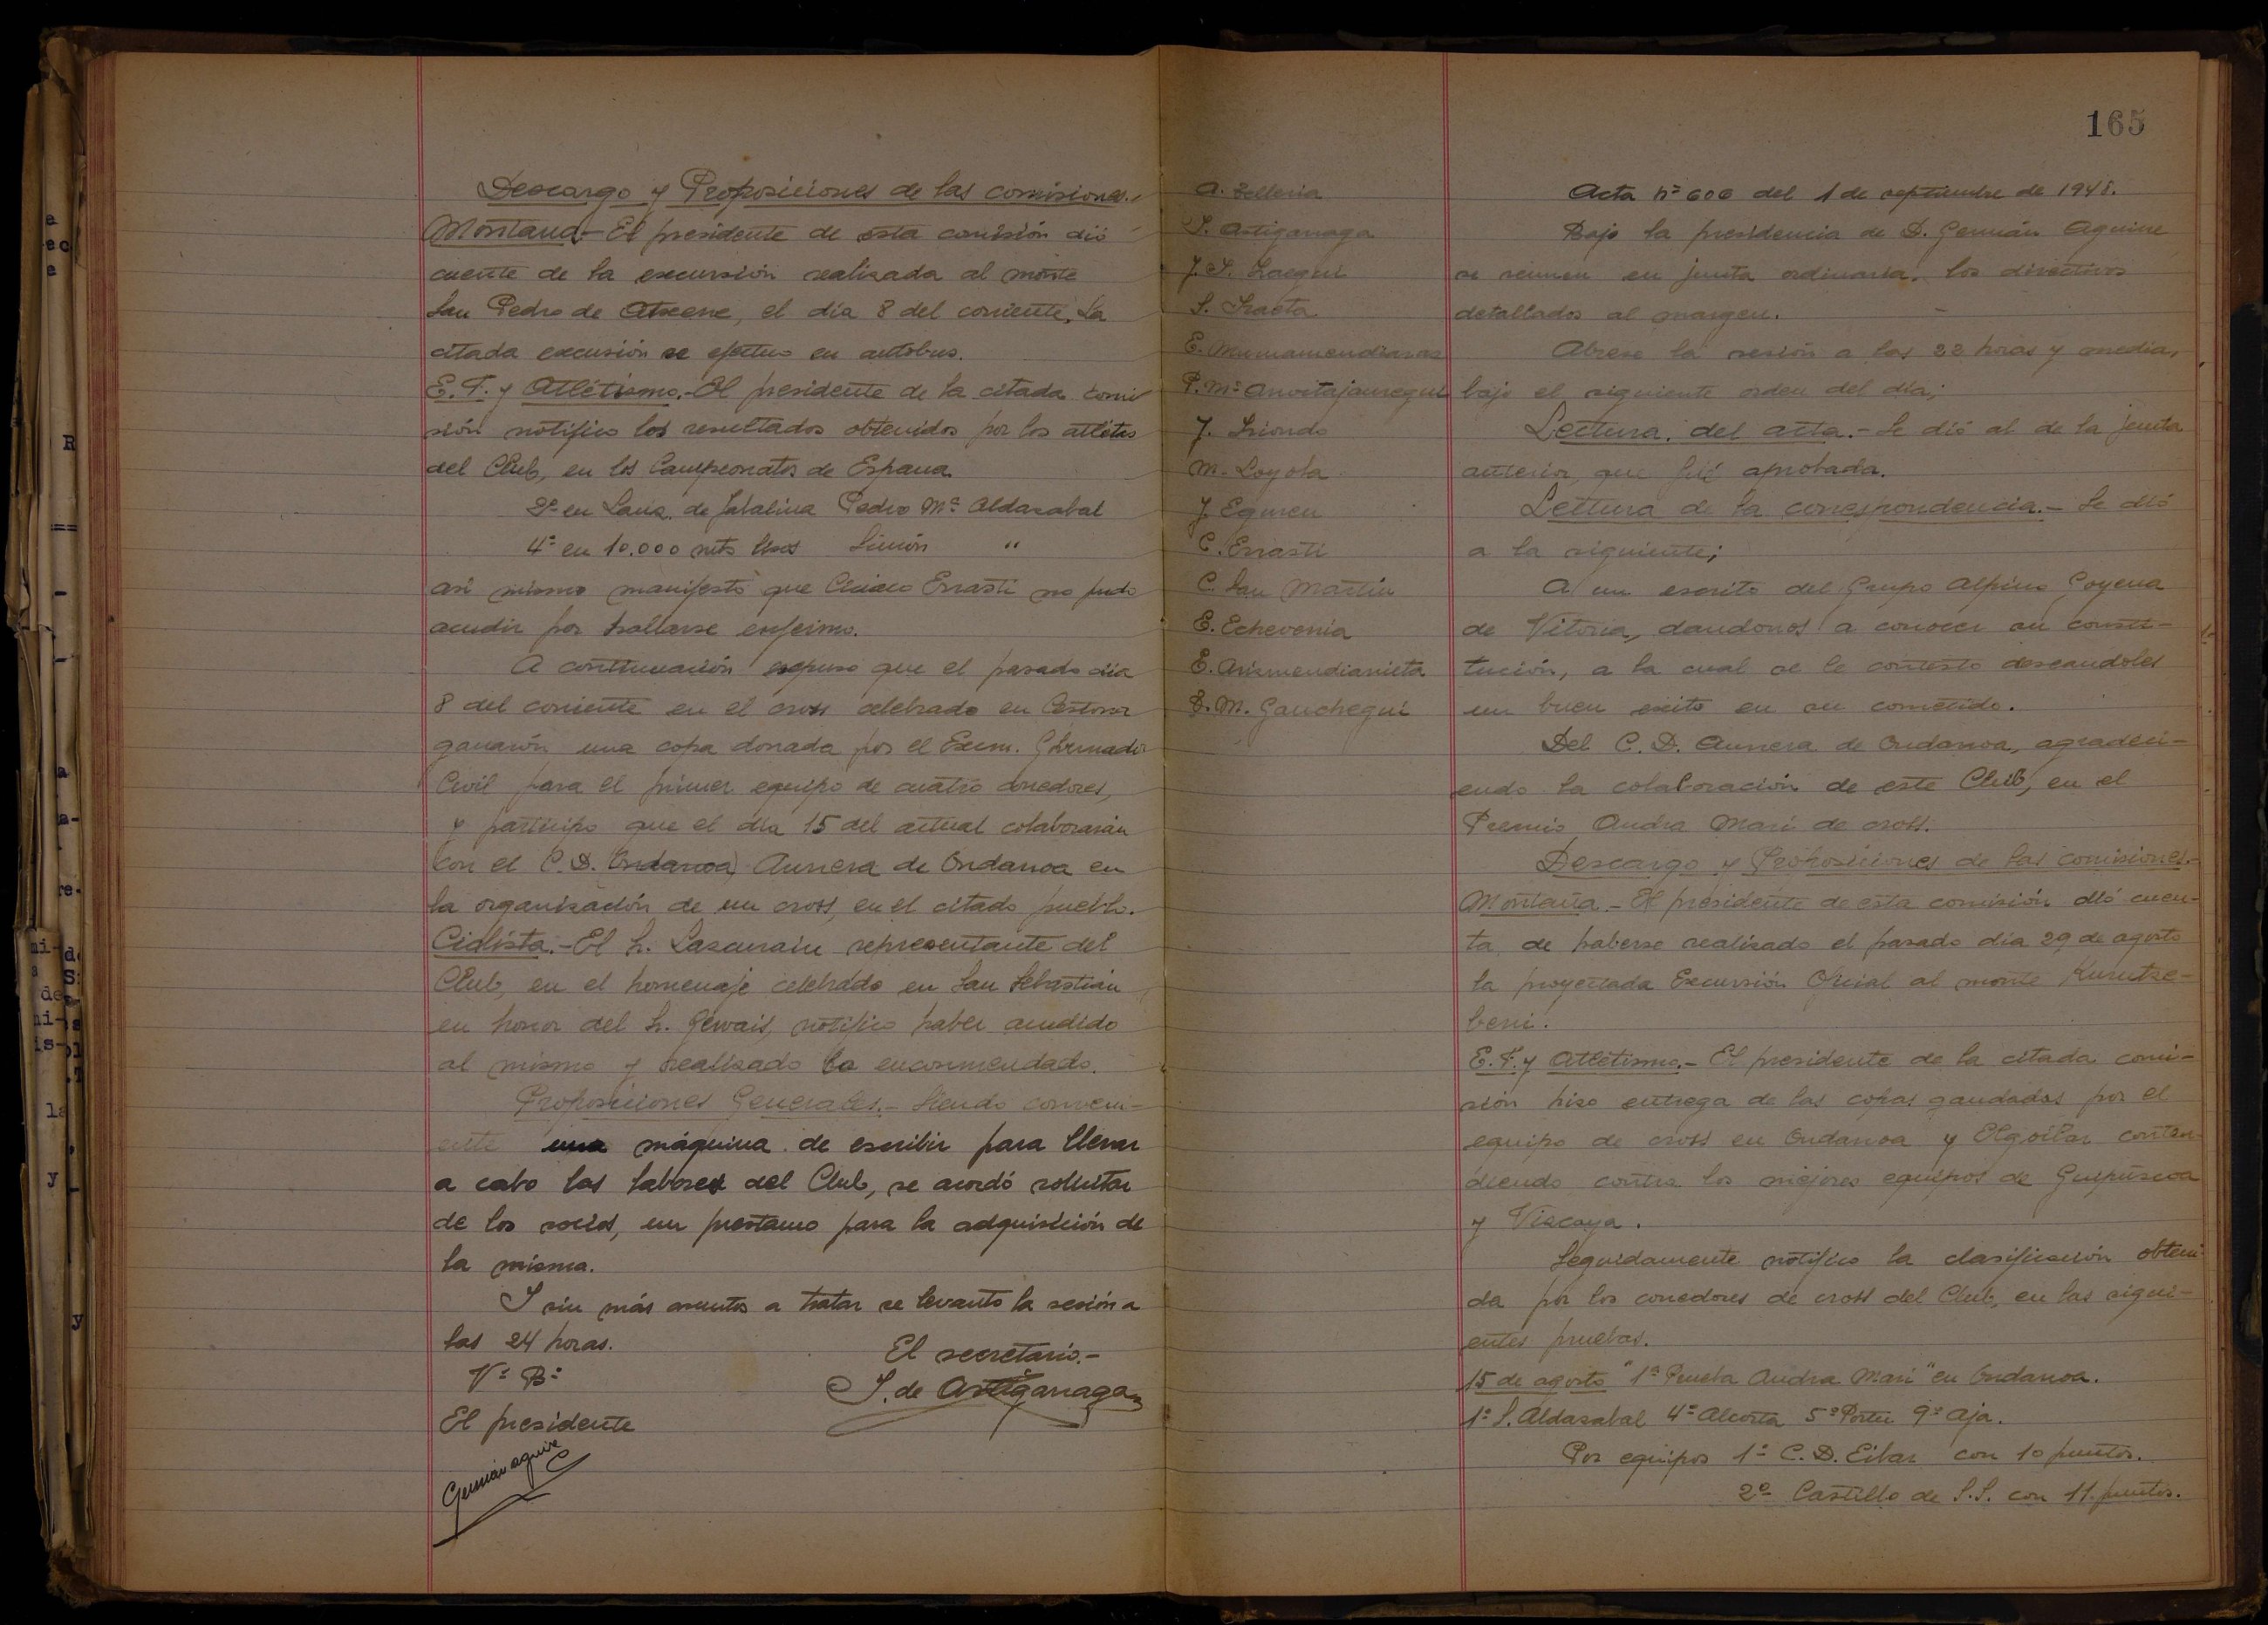 Descargo y Proposiciones de las comisiones.-
Montana.- El presidente de esta comisión dió
cuenta de la excursión realizada al monte
San Pedro de Atxerre, el día 8 del corriente. La
citada excusión se efectuo en autobus.
E.F. y Atlétismo.- El presidente de la citada comi
sión notifico los resultados obtenidos por los atlétas
del Club, en los Campeonatos de Espana
2º en Lanz. de Jabalina Pedro Mª Aldazabal
4º en 10.000 mts lisos Simón "
asi mismo manifestó que Ciriaco Errasti no pudo
acudir por hallarse enfermo.
A continuación expuso que el pasado dia
8 del corriente en el cross celebrado en Cestona
ganarón una copa donada por el Excm. Gobernador
Civil para el primer equipo de cuatro corredores,
y participo que el día 15 del actual colaborarán
con el C.D. (Ondarroa) Aurrera de Ondarroa en
la organización de un cross, en el citado pueblo.
Ciclista.- El Sr. Lascurain representante del
Club, en el homenaje celebrado en San Sebastián
en honor del Sr. Gervais, notifico haber acudido
al mismo y realizado lo encomendado.
Proposiciones Generales.- Siendo conveni-
ente una máquina de escribir para llevar
a cabo las labores del Club, se acordó solicitar
de los socios, un prestamo para la adquisición de
la misma.
I sin más asuntos a tratar se levanto la sesión a
las 24 horas.
El secretario.-
Vº Bº
I. de Astiganaga
El presidente
Germán aguirre
165
A. Telleria
I. Astiganaga
J. I. Loegui
S. Iraeta
E.
P. Mª Arroitajauregui
J. Iriondo
M. Loyola
J. Eguren
C. Errasti
C. San Martin
E. Echeverria
E. Arismendiarrieta
S. M. Gauchegui
Acta nº 606 del 1 de septiembre de 1948.
Bajo la presidencia de D. Germán Aguirre
se reunen en junta ordinaria, los directivos
detallados al margen.
Abrese la sesión a las 22 horas y media,
bajo el siguiente orden del día;
Lectura del acta.- Se dió al de la junta
anterior, que fué aprobada.
Lectura de la correspondencia.- Se dió
a la siguiente;
A un escrito del Grupo Alpino Goyena
de Vitoria, dandonos a conocer su consti-
tución, a la cual se le contesto deseandoles
un buen exito en su cometido.
Del C.D. Aurrera de Ondarroa, agradeci-
endo la colaboración de este Club, en el
Premio Andra Mari de cross.
Descargo y Proposiciones de las comisiones.-
Montaña.- El presidente de esta comisión dió cuen-
ta de haberse realizado el pasado día 29 de agosto
la proyectada Excursión Oficial al monte Kurutze-
berri.
E.F. y Atlétismo.- El presidente de la citada comi-
sión hizo entrega de las copas gandadas por el
equipo de cross en Ondarroa y Elgoibar conten-
diendo contra los mejores equipos de Guipúzcoa
y Viscaya.
Seguidamente notifico la clasificación obteni-
da por los corredores de cross del Club, en las sigui-
entes pruebas.
15 de agosto "1ª Prueba Andra Mari" en Ondarroa.
1º S. Aldazabal 4º Alcorta 5º Portu 9º Aja.
Por equipos 1º C.D. Eibar con 10 puntos.
2º Castillo de S.S. con 11 puntos.